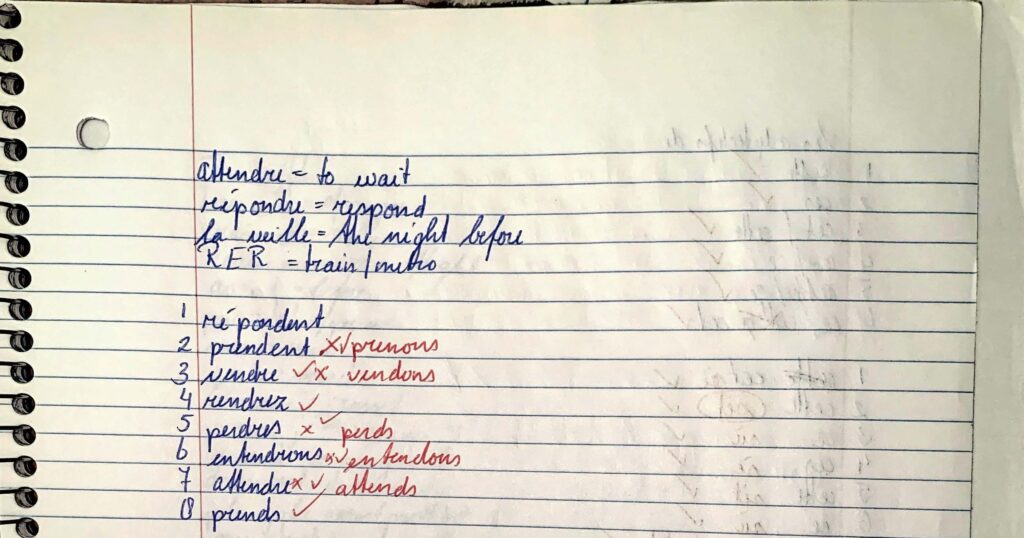 attendre = to wait
répondre = respond
la veille = the night before
RER = train/metro
1 répondent
2 prendent x✓prenons
3 vendre ✓x vendons
4 rendrez ✓
5 perdres x✓ perds
6 entendrons x✓entendons
7 attendre x✓ attends
8 prends ✓